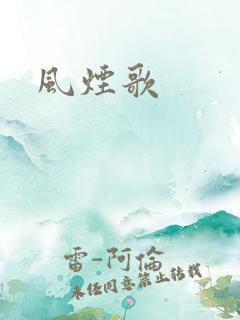 風煙歌
雷-阿倫
未經同意禁止轉載